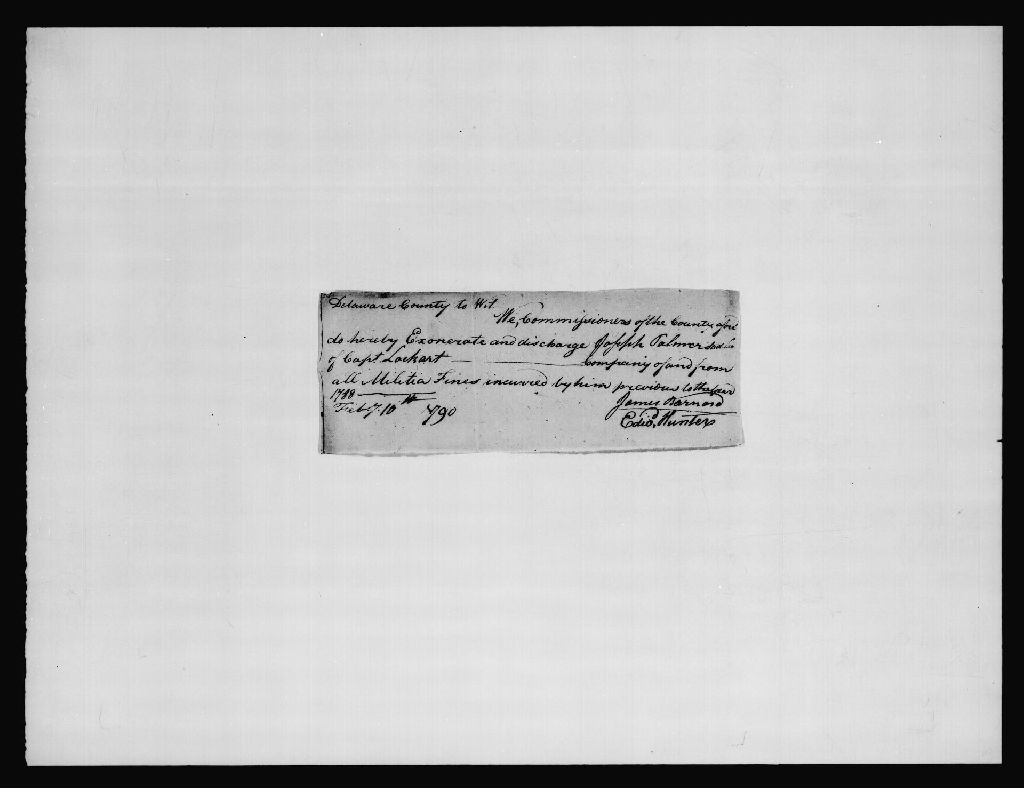 Delaware County to Wit
We, Commissioners of the County afsd
do hereby Exonerate and discharge Joseph Palmer
of Capt Lockart — Company of and from
all Militia Fines incurred by him previous to the year
1788
Feby. 10th 790
James Barnard
Edwd. Hunter